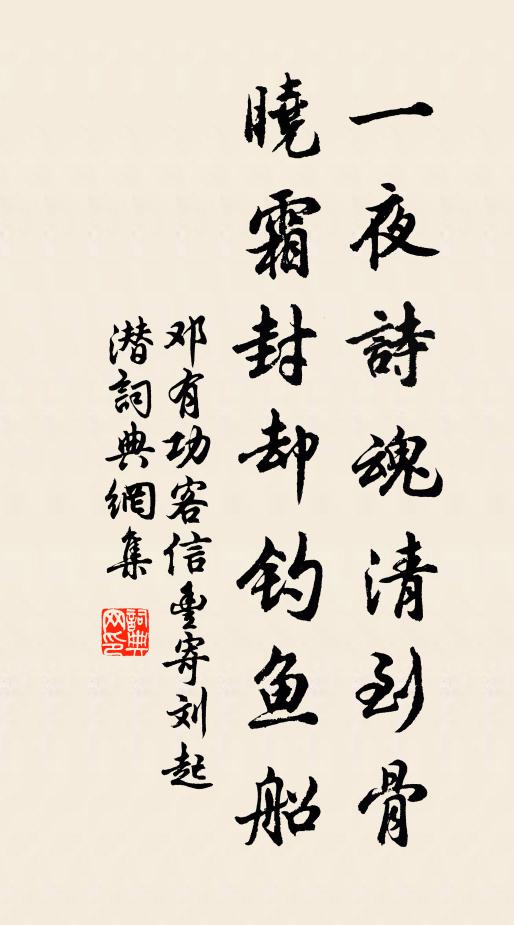 一夜詩魂清到骨
曉霜封却钓鱼船
邓有功客信豐寄刘起
潜詞典網集
詞典網印